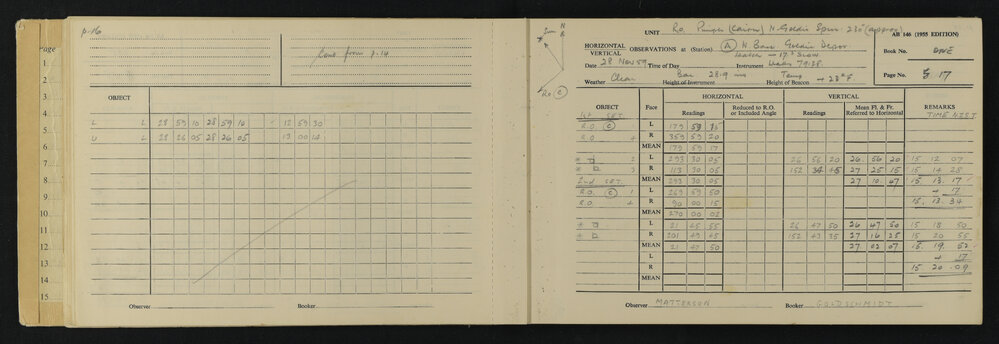 p.16
Page
1
2
3
4
5
6
7
8
9
10
11
12
13
14
15
Cont from p.14
OBJECT
L L 28 59 10 28 59 10 12 59 30
U L 28 26 05 28 26 05 13 00 14
Observer Booker
Sun N
Ro C
UNIT R.O. (Cairn) N. Goldie Spur 230° (approx)
AB 146 (1955 EDITION)
HORIZONTAL
VERTICAL
OBSERVATIONS at (Station) A N. Base Goldie Depot
Book No. ONE
Date 28 Nov 59 Time of Day Instrument Wild 79128
Weather Clear Bar 28.9 Height of Instrument Temp + 28°F. Height of Beacon
Page No. 17
OBJECT Face HORIZONTAL VERTICAL REMARKS
Readings Reduced to R.O. or Included Angle Readings Mean Fl. & Fr. Referred to Horizontal TIME NZST
1st SET
R.O. C L 179 59 15
R.O. R 359 59 20
MEAN 179 59 17
* 2 L 293 30 05 26 56 20 26 56 20 15 12 07
* 3 R 113 30 05 152 34 45 27 25 15 15 14 28
2nd SET MEAN 293 30 05 27 10 47 15 13 17
R.O. C 1 L 269 59 50 + 17
R.O. R 90 00 15 15 13 34
MEAN 270 00 02
* L 21 45 55 26 47 50 26 47 50 15 18 50
* R 201 49 45 152 43 35 27 16 25 15 20 55
MEAN 21 47 50 27 02 07 15 19 52
L + 17
R 15 20 09
MEAN
Observer MATTERSON Booker GOLDSCHMIDT